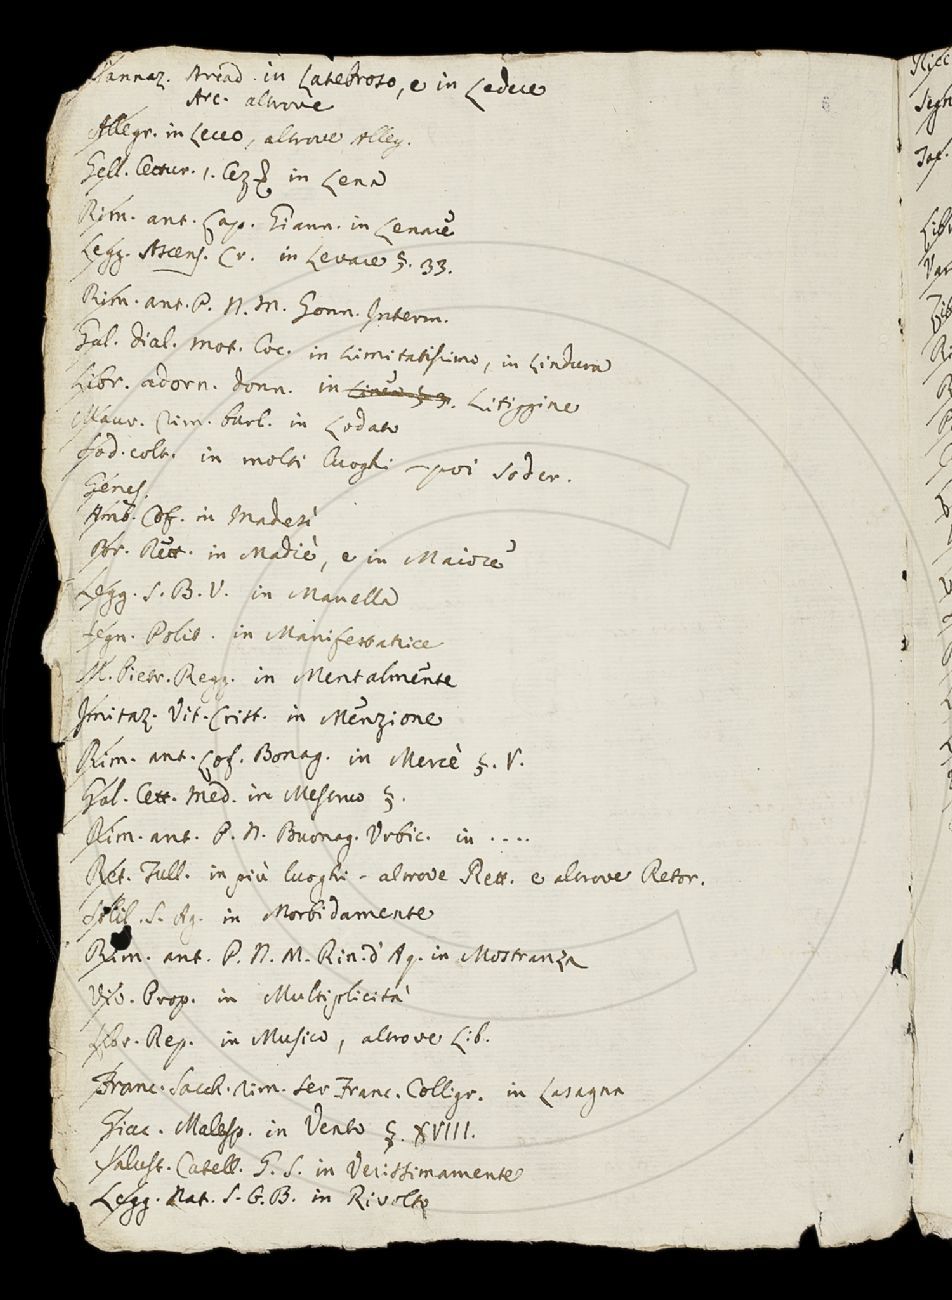 Sannaz. Arcad. in Latebroso, e in Ledere
Arc. altrove
Allegr. in Lecco, altrove Alleg.
Gell. Lettur. 1. Lez. in Lena
Rim. ant. Cap. Giann. in Lenaré
Legg. Ascens. Cr. in Levare §. 33.
Rim. ant. P. N. M. Gonn. Interm.
Gal. Dial. mot. Loc. in Limitatissimo, in Lindura
Libr. adorn. donn. in Litiggine
Maur. Rim. burl. in Lodato
Sod. colt. in molti luoghi – poi Soder.
Genes.
Amb. Cof. in Madesì
Br. Rett. in Madiè, e in Maioré
Legg. S. B. V. in Manella
Segn. Polit. in Manifestatrice
M. Pietr. Regg. in Mentalmente
Imitaz. Vit. Crist. in Menzione
Rim. ant. Lof. Bonag. in Mercè §. V.
Gal. Lett. Med. in Mestruo §.
Rim. ant. P. N. Buonag. Urbic. in ....
Ret. Tull. in più luoghi – altrove Rett. e altrove Retor.
Stil. S. Ag. in Morbidamente
Rim. ant. P. N. M. Rin. d' Aq. in Mostranza
Viv. Prop. in Multiplicità
Libr. Rep. in Musico, altrove Lib.
Franc. Sacch. Rim. Ser Franc. Colligr. in Lasagna
Giac. Malesp. in Vento §. XVIII.
Salust. Catell. G. S. in Verissimamente
Legg. Nat. S. G. B. in Rivolto